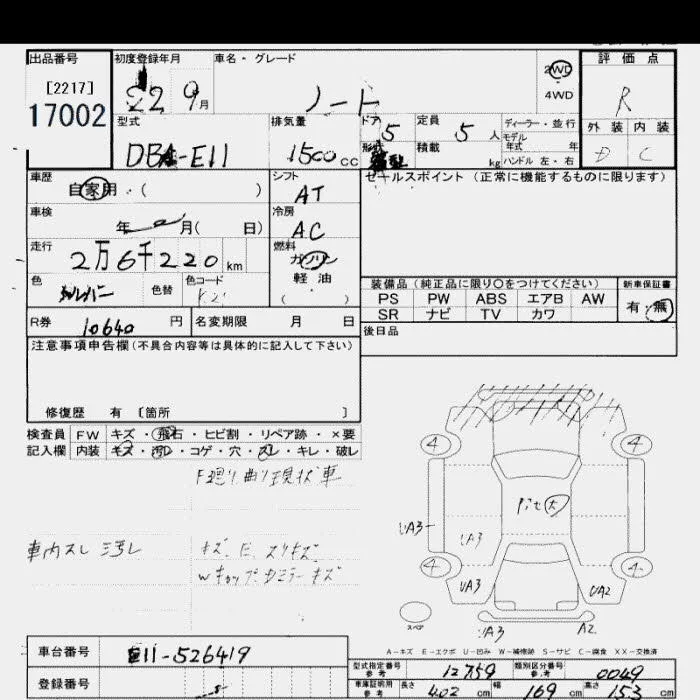 出品番号 初度登録年月 車名・グレード 2WD 評価点
[2217] 22 9月 ノート 4WD R
17002 型式 排気量 ドア 5 定員 5人 ディーラー・並行 外装 内装
モデル
DBA-E11 1500cc 形状 積載 kg 年式 年 D C
ハンドル 左・右
車歴 シフト セールスポイント (正常に機能するものに限ります)
自家用・( ) AT
車検 冷房
年 月( 日) AC
走行 燃料
2万6千220km ガソリン
色 色替 色コード 軽油 装備品 (純正品に限り〇をつけてください) 新車保証書
( ) PS PW ABS エアB AW 有・無
R券 10640円 名変期限 月 日 SR ナビ TV カワ
注意事項申告欄 (不具合内容等は具体的に記入して下さい) 後日品
修復歴 有 〔箇所 〕
検査員 FW キズ・飛石・ヒビ割・リペア跡・×要
記入欄 内装 キズ・汚レ・コゲ・穴・スレ・キレ・破レ
4 4
F廻り曲り現状車
UA3 UA3
車内スレ 汚レ キズ、E、スリキズ
4 4
UA3 UA2
スペア UA3 A2
A-キズ E-エクボ U-凹み W-補修跡 S-サビ C-腐食 XX-交換済
車台番号 E11-526419
型式指定番号 参考 12759 類別区分番号 参考 0049
登録番号 車庫証明用 参考 長さ 402cm 幅 169cm 高さ 153cm